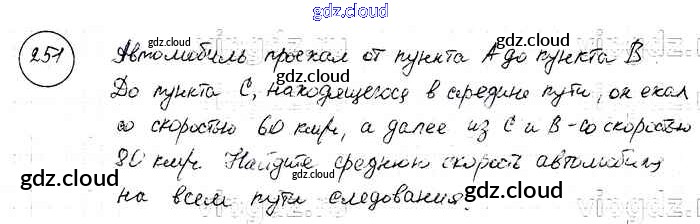 gdz.cloud
251 Автомобиль проехал от пункта А до пункта В
До пункта С, находящегося в середине пути, он ехал
со скоростью 60 км/ч, а далее из С и В - со скоростью
80 км/ч. Найдите среднюю скорость автомобиля
на всем пути следования.
gdz.cloud
gdz.cloud
gdz.cloud
gdz.cloud
gdz.cloud
gdz.cloud
gdz.cloud
gdz.cloud
gdz.cloud
gdz.cloud